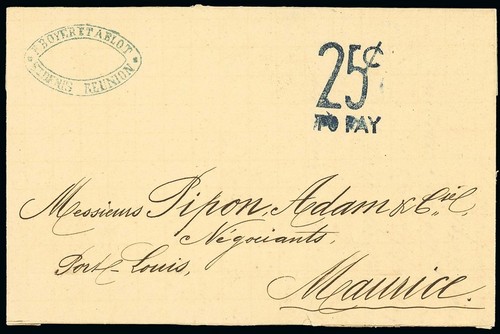 P. BOYER ET ABLOT
* ST DENIS REUNION *
25¢
TO PAY
Messieurs Pipon, Adam & Cie,
Négociants,
Port-Louis,
Maurice.